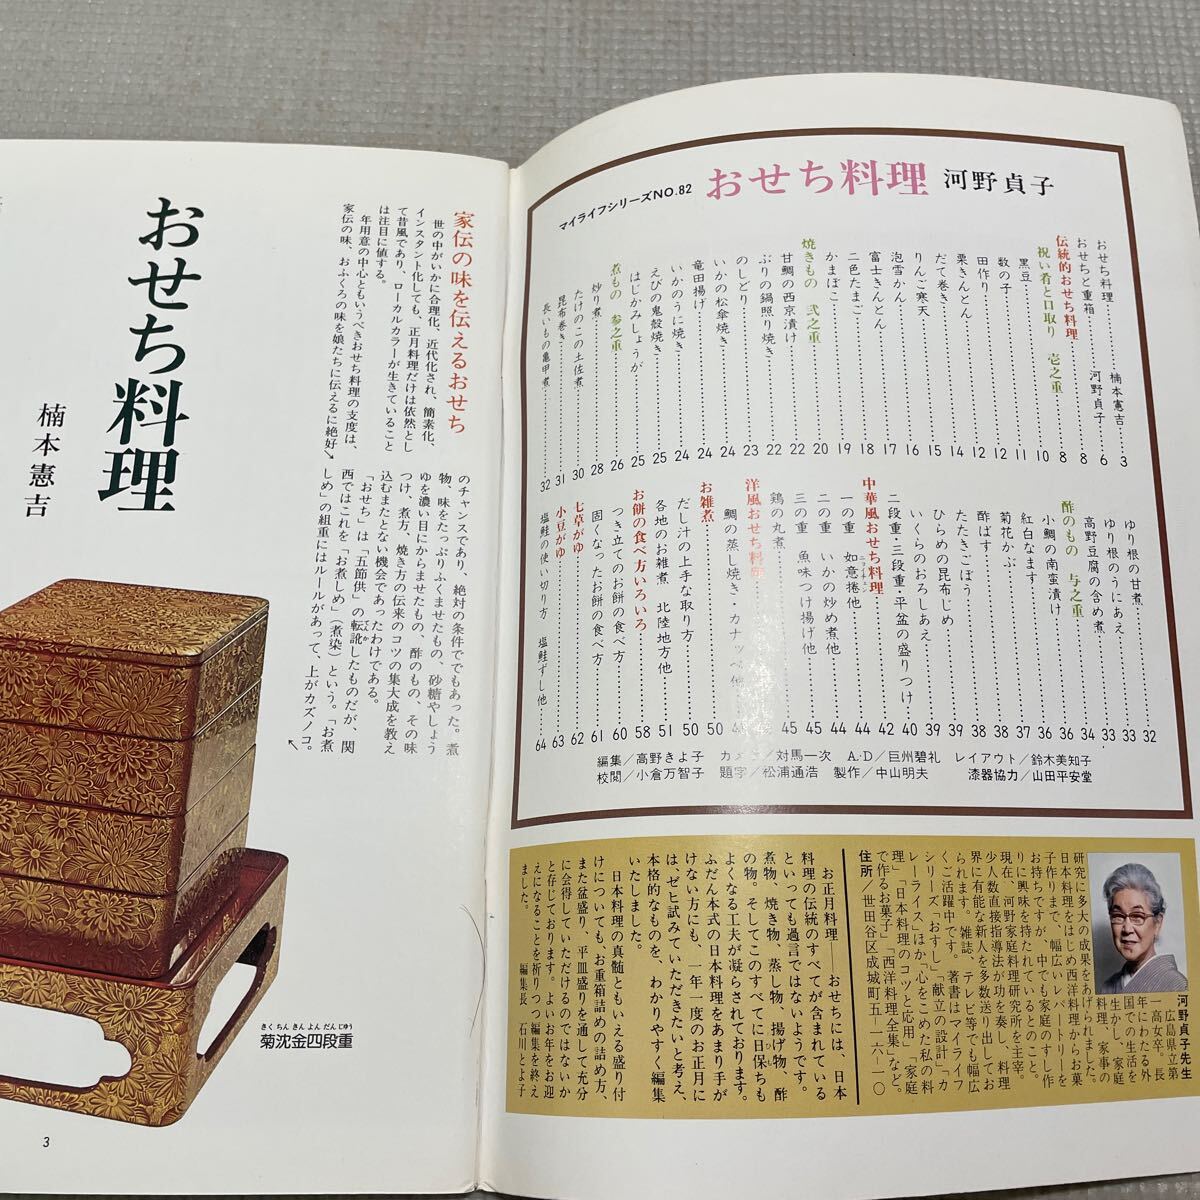 マイライフシリーズNO.82
おせち料理 河野貞子
おせち料理 楠本憲吉 3
おせちと重箱 河野貞子 6
伝統的おせち料理 8
祝い肴と口取り 壱之重 8
黒豆 10
数の子 11
田作り 12
栗きんとん 12
だて巻き 14
りんご寒天 15
泡雪かん 16
富士きんとん 17
二色たまご 18
かまぼこ 19
焼きもの 弐之重 20
甘鯛の西京漬け 22
ぶりの鍋照り焼き 22
のしどり 23
いかの松傘焼き 24
竜田揚げ 24
いかのうに焼き 24
えびの鬼殻焼き 25
はじかみしょうが 25
煮もの 参之重 26
炒り煮 28
たけのこの土佐煮 30
昆布巻き 31
長いもの亀甲煮 32
ゆり根の甘煮 32
ゆり根のうにあえ 33
高野豆腐の含め煮 33
酢のもの 与之重 34
小鯛の南蛮漬け 36
紅白なます 36
菊花かぶ 37
酢ばす 38
たたきごぼう 38
ひらめの昆布じめ 39
いくらのおろしあえ 39
二段重・三段重・平盆の盛りつけ 40
中華風おせち料理 42
一の重 如意捲他 44
二の重 いかの炒め煮他 44
三の重 魚味つけ揚げ他 45
鶏の丸煮 45
洋風おせち料理
鯛の蒸し焼き・カナッペ他
お雑煮 50
だし汁の上手な取り方 50
各地のお雑煮 北陸地方他 51
お餅の食べ方いろいろ 58
つき立てのお餅の食べ方 60
固くなったお餅の食べ方 61
七草がゆ 62
小豆がゆ 63
塩鮭の使い切り方 塩鮭ずし他 64
編集／高野きよ子 カメラ／対馬一次 A.D／巨州碧礼 レイアウト／鈴木美知子
校閲／小倉万智子 題字／松浦通浩 製作／中山明夫 漆器協力／山田平安堂
河野貞子先生
広島県立第
一高女卒。長
年にわたる外
国での生活を
生かし、家庭
料理、家事の
研究に多大の成果をあげられました。
日本料理をはじめ西洋料理からお菓
子作りまで、幅広いレパートリーを
お持ちですが、中でも家庭のすし作
りに興味を持たれているとのこと。
現在、河野家庭料理研究所を主宰。
少人数直接指導法が功を奏し、料理
界に有能な新人を多数送り出してお
られます。雑誌、テレビ等でも幅広
くご活躍中です。著書はマイライフ
シリーズ「おすし」「献立の設計」「カ
レーライス」ほか、心をこめた私の料
理」「日本料理のコツと応用」「家庭
で作るお菓子」「西洋料理全集」など。
住所／世田谷区成城町五ー一六ー一〇
お正月料理――おせちには、日本
料理の伝統のすべてが含まれている
といっても過言ではないようです。
煮物、焼き物、蒸し物、揚げ物、酢
の物。そしてこのすべてに日保ちも
よくなる工夫が凝らされております。
ふだん本式の日本料理をあまり手が
けない方にも、一年一度のお正月に
は、ぜひ試みていただきたいと考え、
本格的なものを、わかりやすく編集
いたしました。
日本料理の真髄ともいえる盛り付
けについても、お重箱詰めの詰め方、
また盆盛り、平皿盛りを通して充分
に会得していただけるのではないか
と存じております。よいお年をお迎
えになることを祈りつつ編集を終え
ました。 編集長 石川とよ子
おせち料理
楠本憲吉
家伝の味を伝えるおせち
世の中がいかに合理化、近代化され、簡素化、
インスタント化しても、正月料理だけは依然とし
て昔風であり、ローカルカラーが生きていること
は注目に値する。
年用意の中心ともいうべきおせち料理の支度は、
家伝の味、おふくろの味を娘たちに伝えるに絶好
のチャンスであり、絶対の条件ででもあった。煮
物、味をたっぷりふくませたもの、砂糖やしょう
ゆを濃い目にからませたもの、酢のもの、その味
つけ、煮方、焼き方の伝来のコツの集大成を教え
込むまたとない機会であったわけである。
「おせち」は「五節供」の転訛したものだが、関
西ではこれを「お煮しめ」（煮染）という。「お煮
しめ」の組重にはルールがあって、上がカズノコ。
きくちんきんよんだんじゅう
菊沈金四段重
3